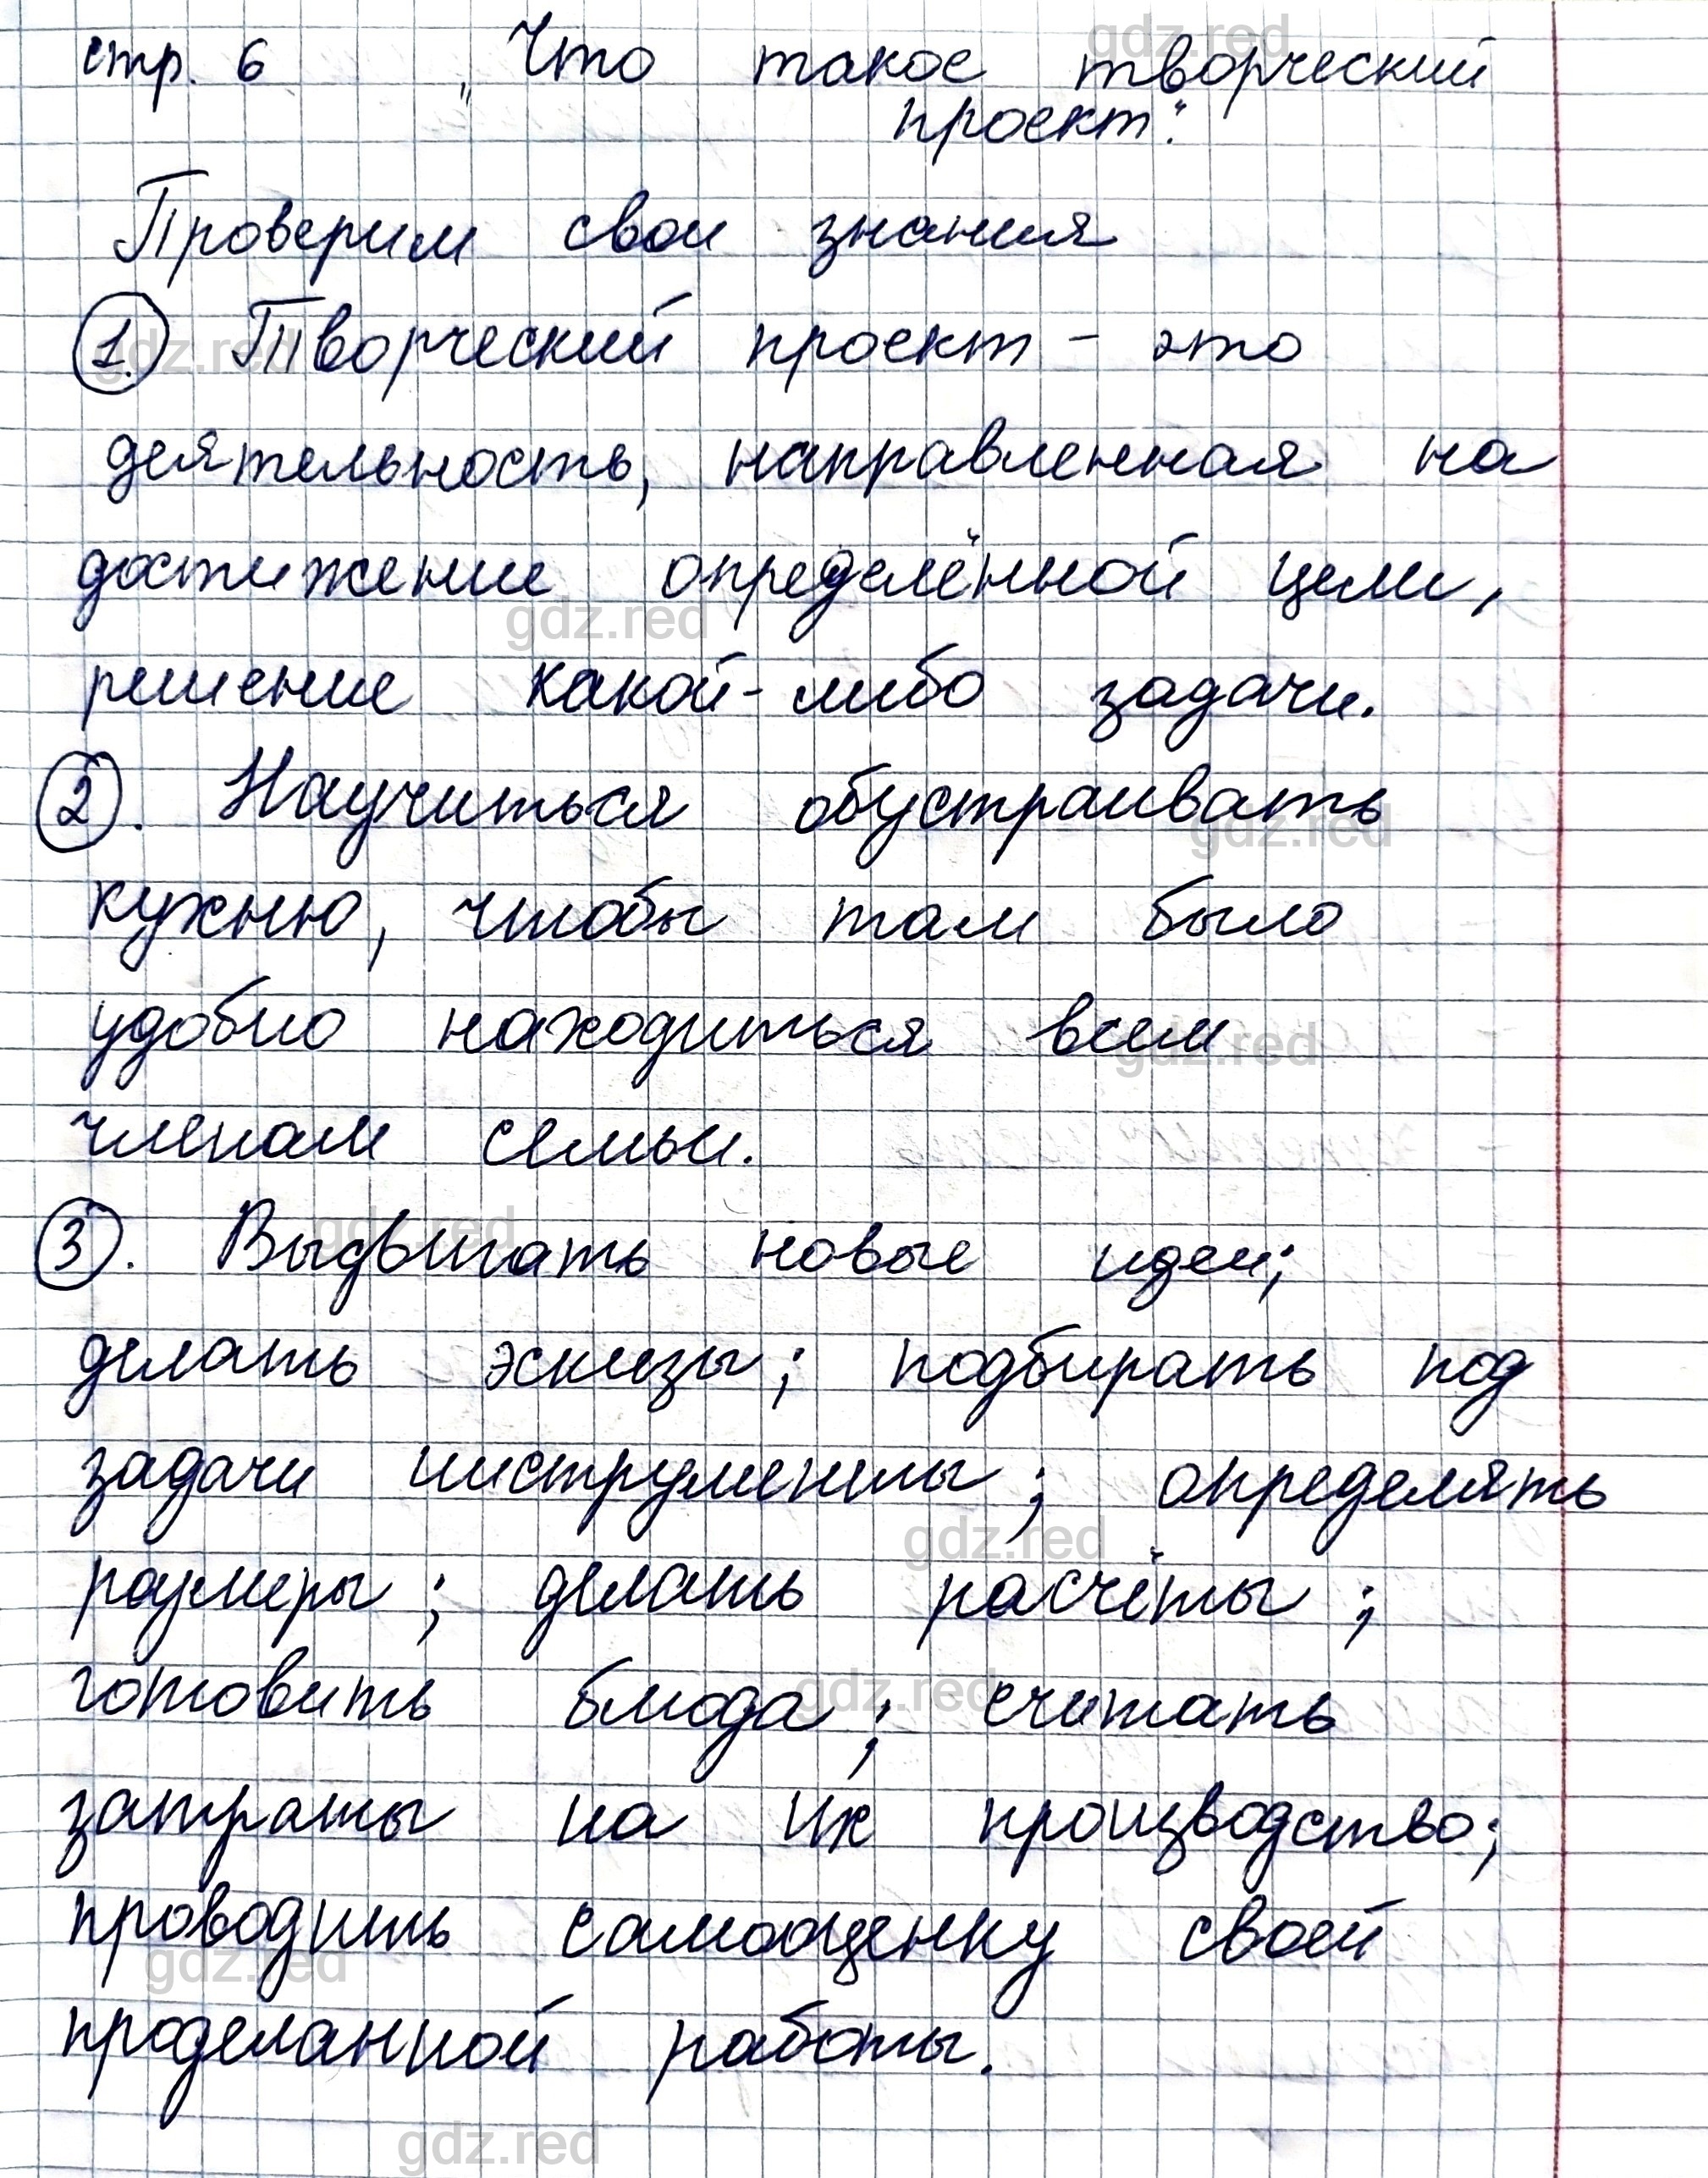 стр. 6 „Что такое творческий
проект".
Проверим свои знания
1. Творческий проект - это
деятельность, направленная на
достижение определённой цели,
решение какой-либо задачи.
2. Научиться обустраивать
кухню, чтобы там было
удобно находиться всем
членам семьи.
3. Выдвигать новые идеи;
делать эскизы; подбирать под
задачи инструменты; определять
размеры; делать расчёты;
готовить блюда; считать
затраты на их производство;
проводить самооценку своей
проделанной работы.
gdz.red
gdz.red
gdz.red
gdz.red
gdz.red
gdz.red
gdz.red
gdz.red
gdz.red
gdz.red